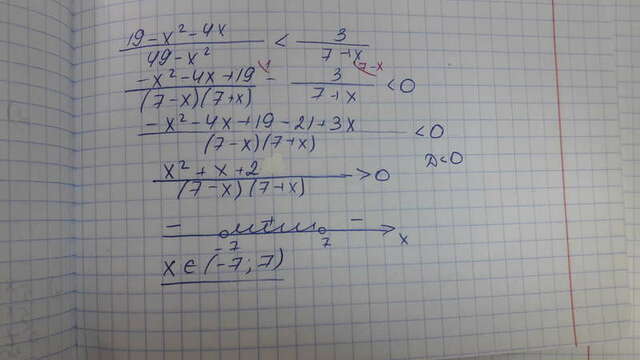 (19-x²-4x)/(49-x²) < 3/(7+x)
(-x²-4x+19)/((7-x)(7+x)) \1 - 3/(7+x) \7-x < 0
(-x²-4x+19-21+3x)/((7-x)(7+x)) < 0
(x²+x+2)/((7-x)(7+x)) > 0 D<0
- + -
-7 7 x
x∈(-7;7)